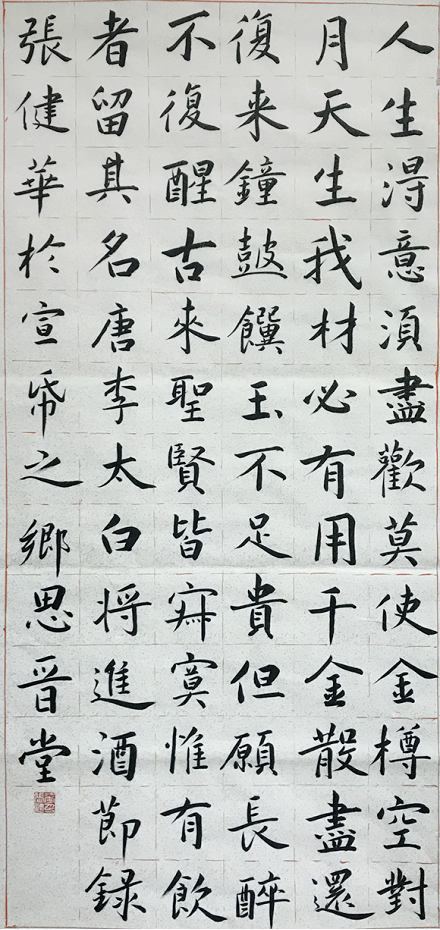 人生得意須盡歡莫使金樽空對
月天生我材必有用千金散盡還
復来鐘鼓饌玉不足貴但願長醉
不復醒古來聖賢皆寂寞惟有飲
者留其名唐李太白将進酒節録
張健華於宣帋之鄉思晋堂